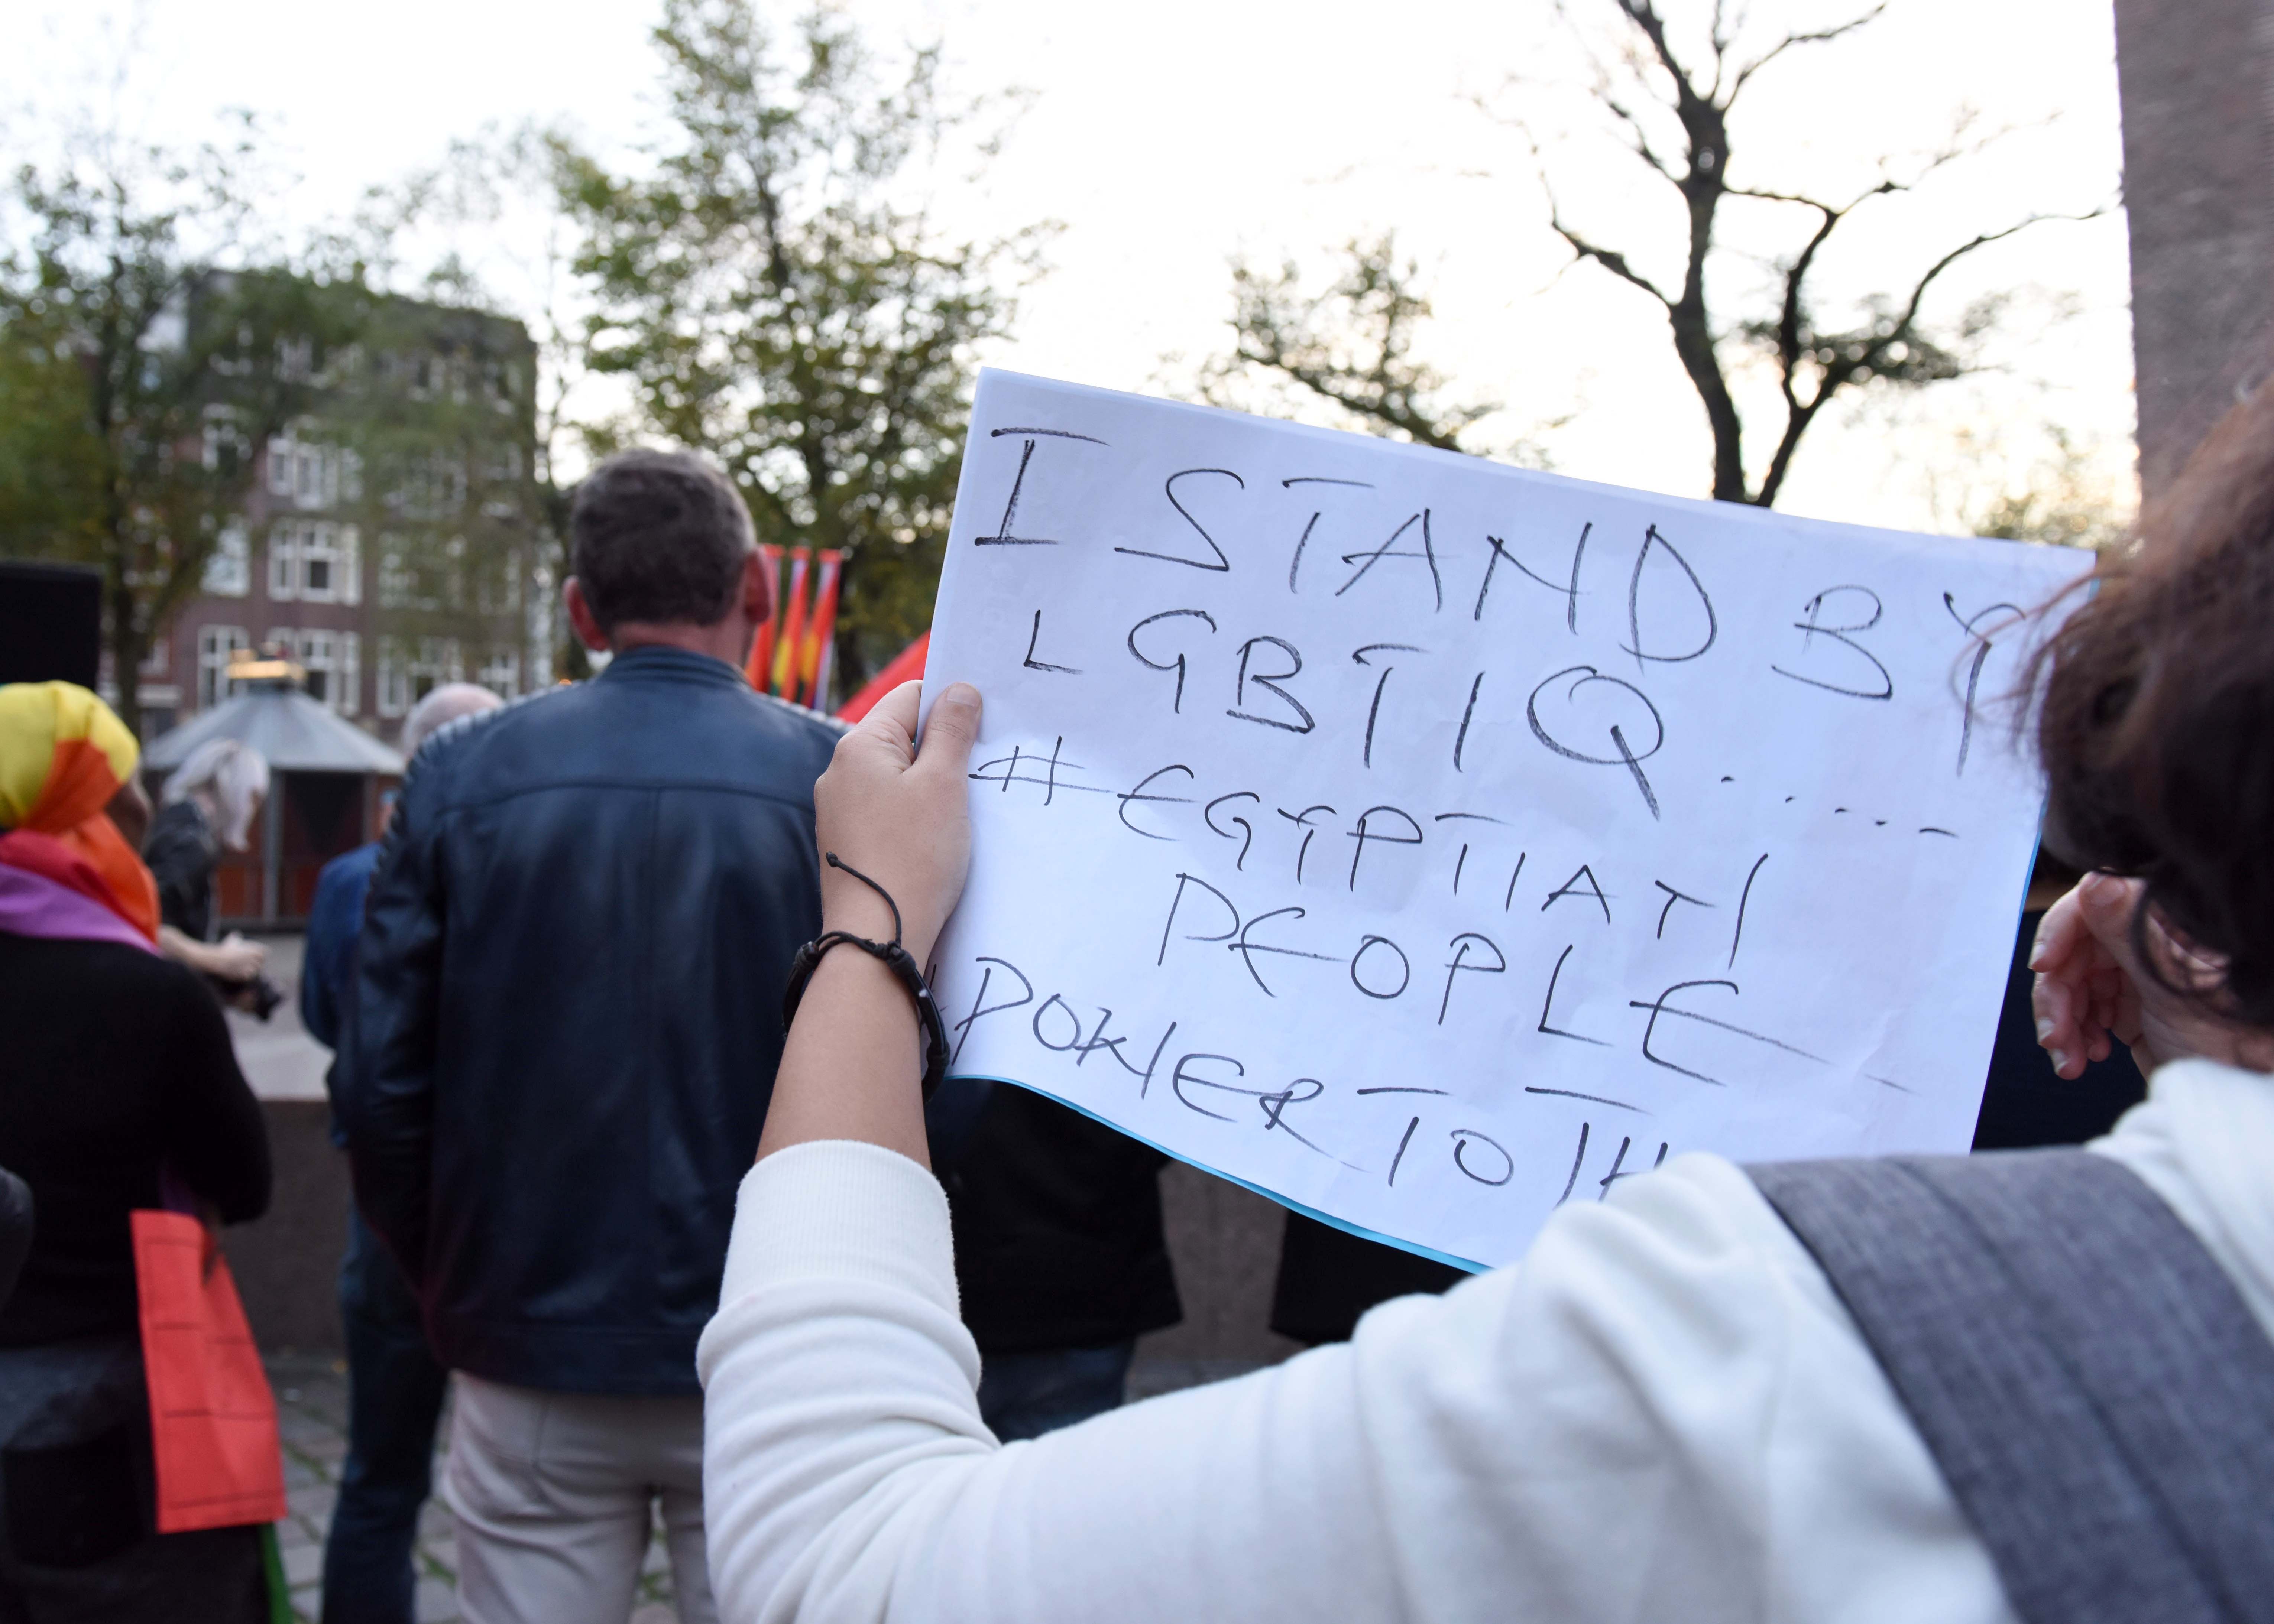 I STAND BY
LGBTIQ.....-
#EGYPTIAN
PEOPLE
POWER TO TH